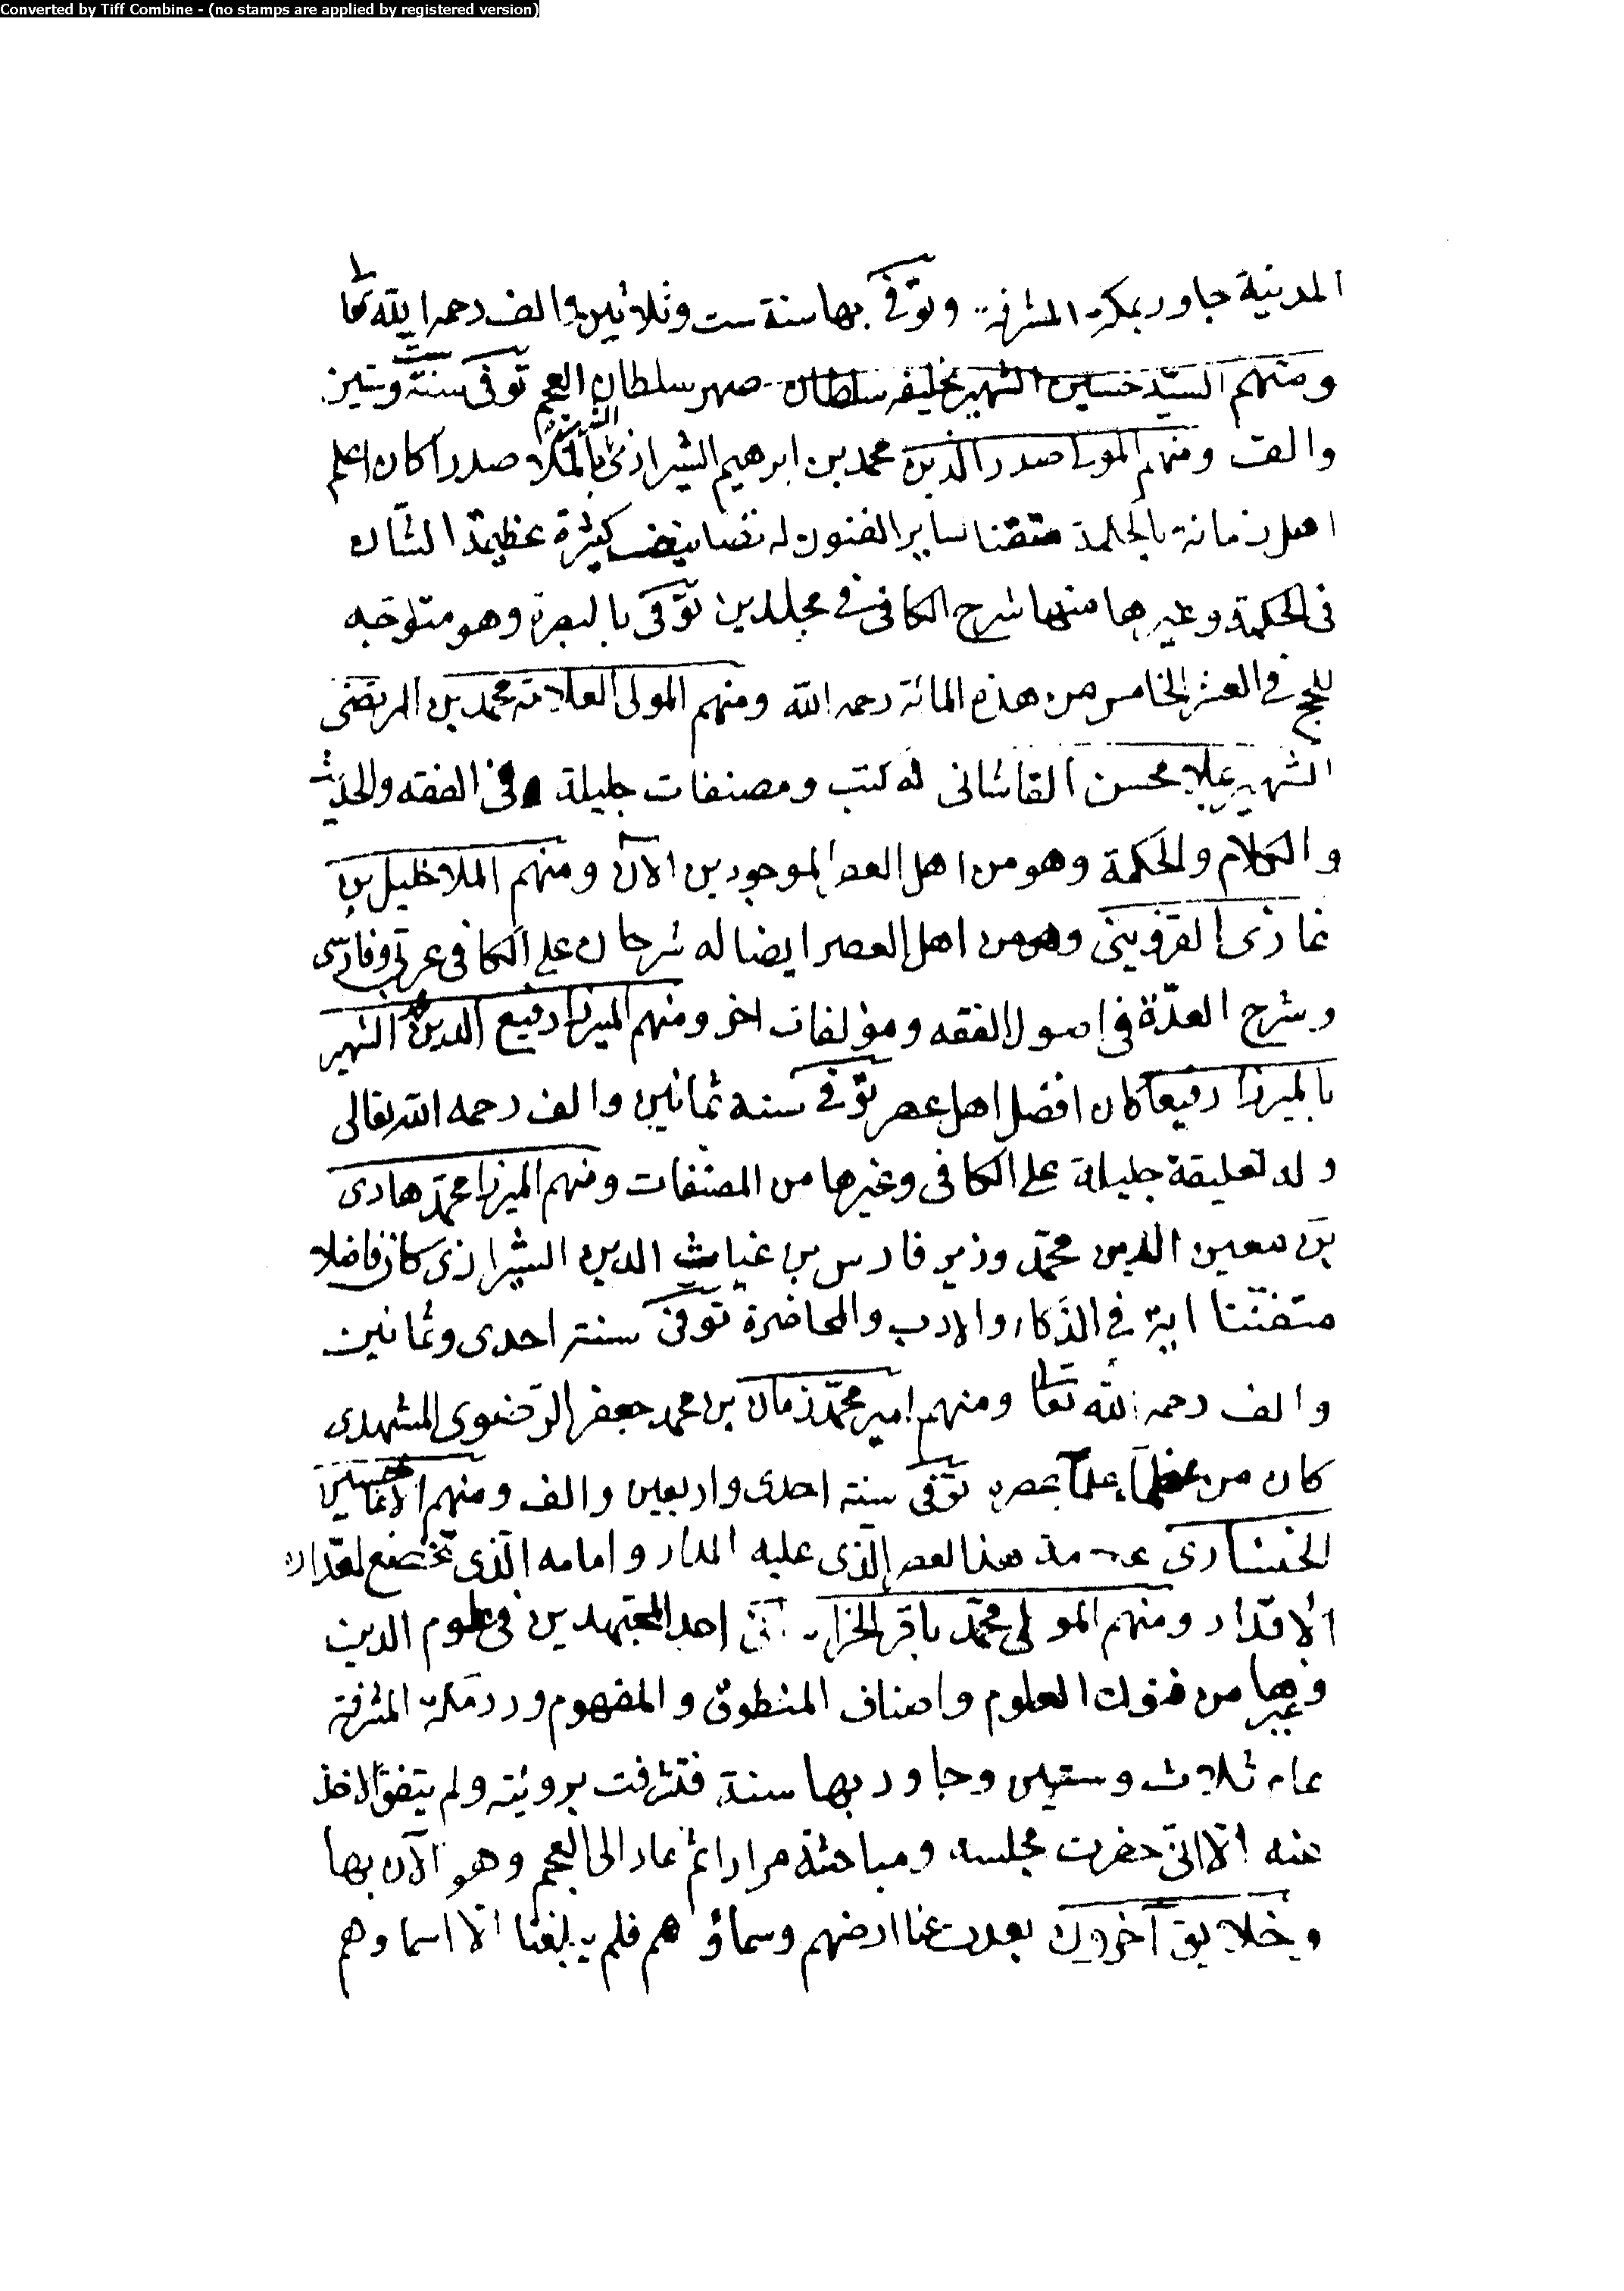 Converted by Tiff Combine - (no stamps are applied by registered version)
المدنية جاور بمكة المشرفة وتوفى بها سنة ست وثلاثين والف رحمه الله تعا
ومنهم السيّد حسين الشهير بخليفه سلطان صهر سلطان العجم توفى سنة ست وستين
والف ومنهم المولى صدر الدين محمد بن ابرهيم الشيرازى الشهير بالملا صدرا كان اعلم
اهل زمانة بالحكمة متقنا لساير الفنون له تصانيف كثيرة عظيمة الشان
فى الحكمة وغيرها منها شرح الكافى فى مجلدين توفى بالبصرة وهو متوجه
للحج فى العشر الخامس من هذه المائة رحمه الله ومنهم المولى العلامة محمد بن المرتضى
الشهير بملا محسن القاشانى له كتب ومصنفات جليلة فى الفقه والحديث
والكلام والحكمة وهو من اهل العصر الموجودين الآن ومنهم الملا خليل بن
غازى القزوينى وهو من اهل العصر ايضا له شرحان على الكافى عربى وفارسى
وشرح العدّة فى اصول الفقه ومؤلفات اخر ومنهم الميرزا رفيع الدين محمد الشهير
بالميرزا رفيعا كان افضل اهل عصره توفى سنة ثمانين والف رحمه الله تعالى
وله تعليقة جليلة على الكافى وغيرها من المصنفات ومنهم الميرزا محمد هادى
بن معين الدين محمّد وزير فارس بن غياث الدين الشيرازى كان فاضلا
متفنّنا اية فى الذكاء والادب والمحاضرة توفى سنة احدى وثمانين
والف رحمه الله تعا ومنهم امير محمّد زمان بن محمد جعفر الرّضوى المشهدى
كان من عظماء علماء عصره توفى سنة احدى واربعين والف ومنهم الاغا حسين
الخنسارى علامة هذا العصر الّذى عليه المدار وامامه الّذى تخضع لمقداره
الاقدار ومنهم المولى محمّد باقر الخراسانى احد المجتهدين فى علوم الدين
وغيرها من فنون العلوم واصناف المنطوق والمفهوم ورد مكة المشرفة
عام ثلاث وستين وجاور بها سنة فتشرفت برويته ولم يتفق الاخذ
عنه الا انى حضرت مجلسه ومباحثة مرارا ثم عاد الى العجم وهو الآن بها
وخلايق آخرون بعدت عنا ارضهم وسماؤهم فلم يبلغنا الّا اسماوهم